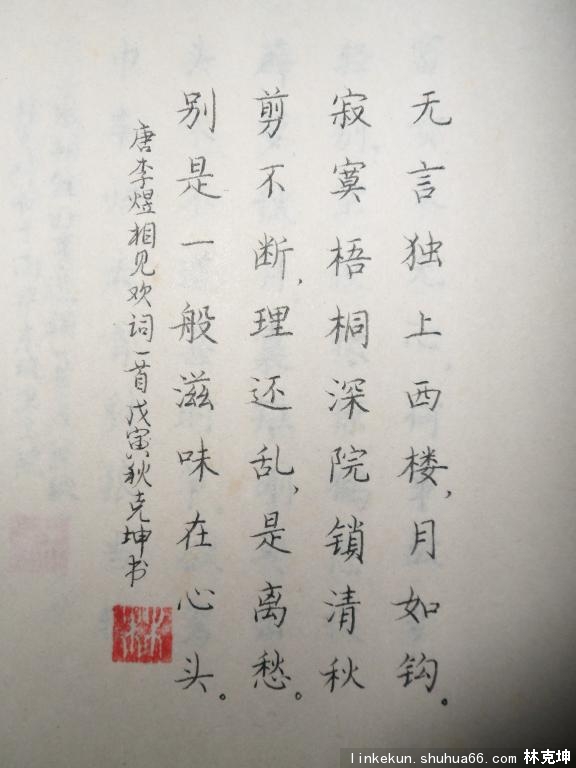 无言独上西楼，月如钩。
寂寞梧桐深院锁清秋
剪不断，理还乱，是离愁。
别是一般滋味在心头。
唐李煜相见欢词一首戊寅秋克坤书
林
linkekun.shuhua66.com 林克坤